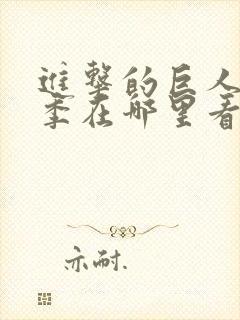 進撃的巨人
季在哪里看
亦耐.